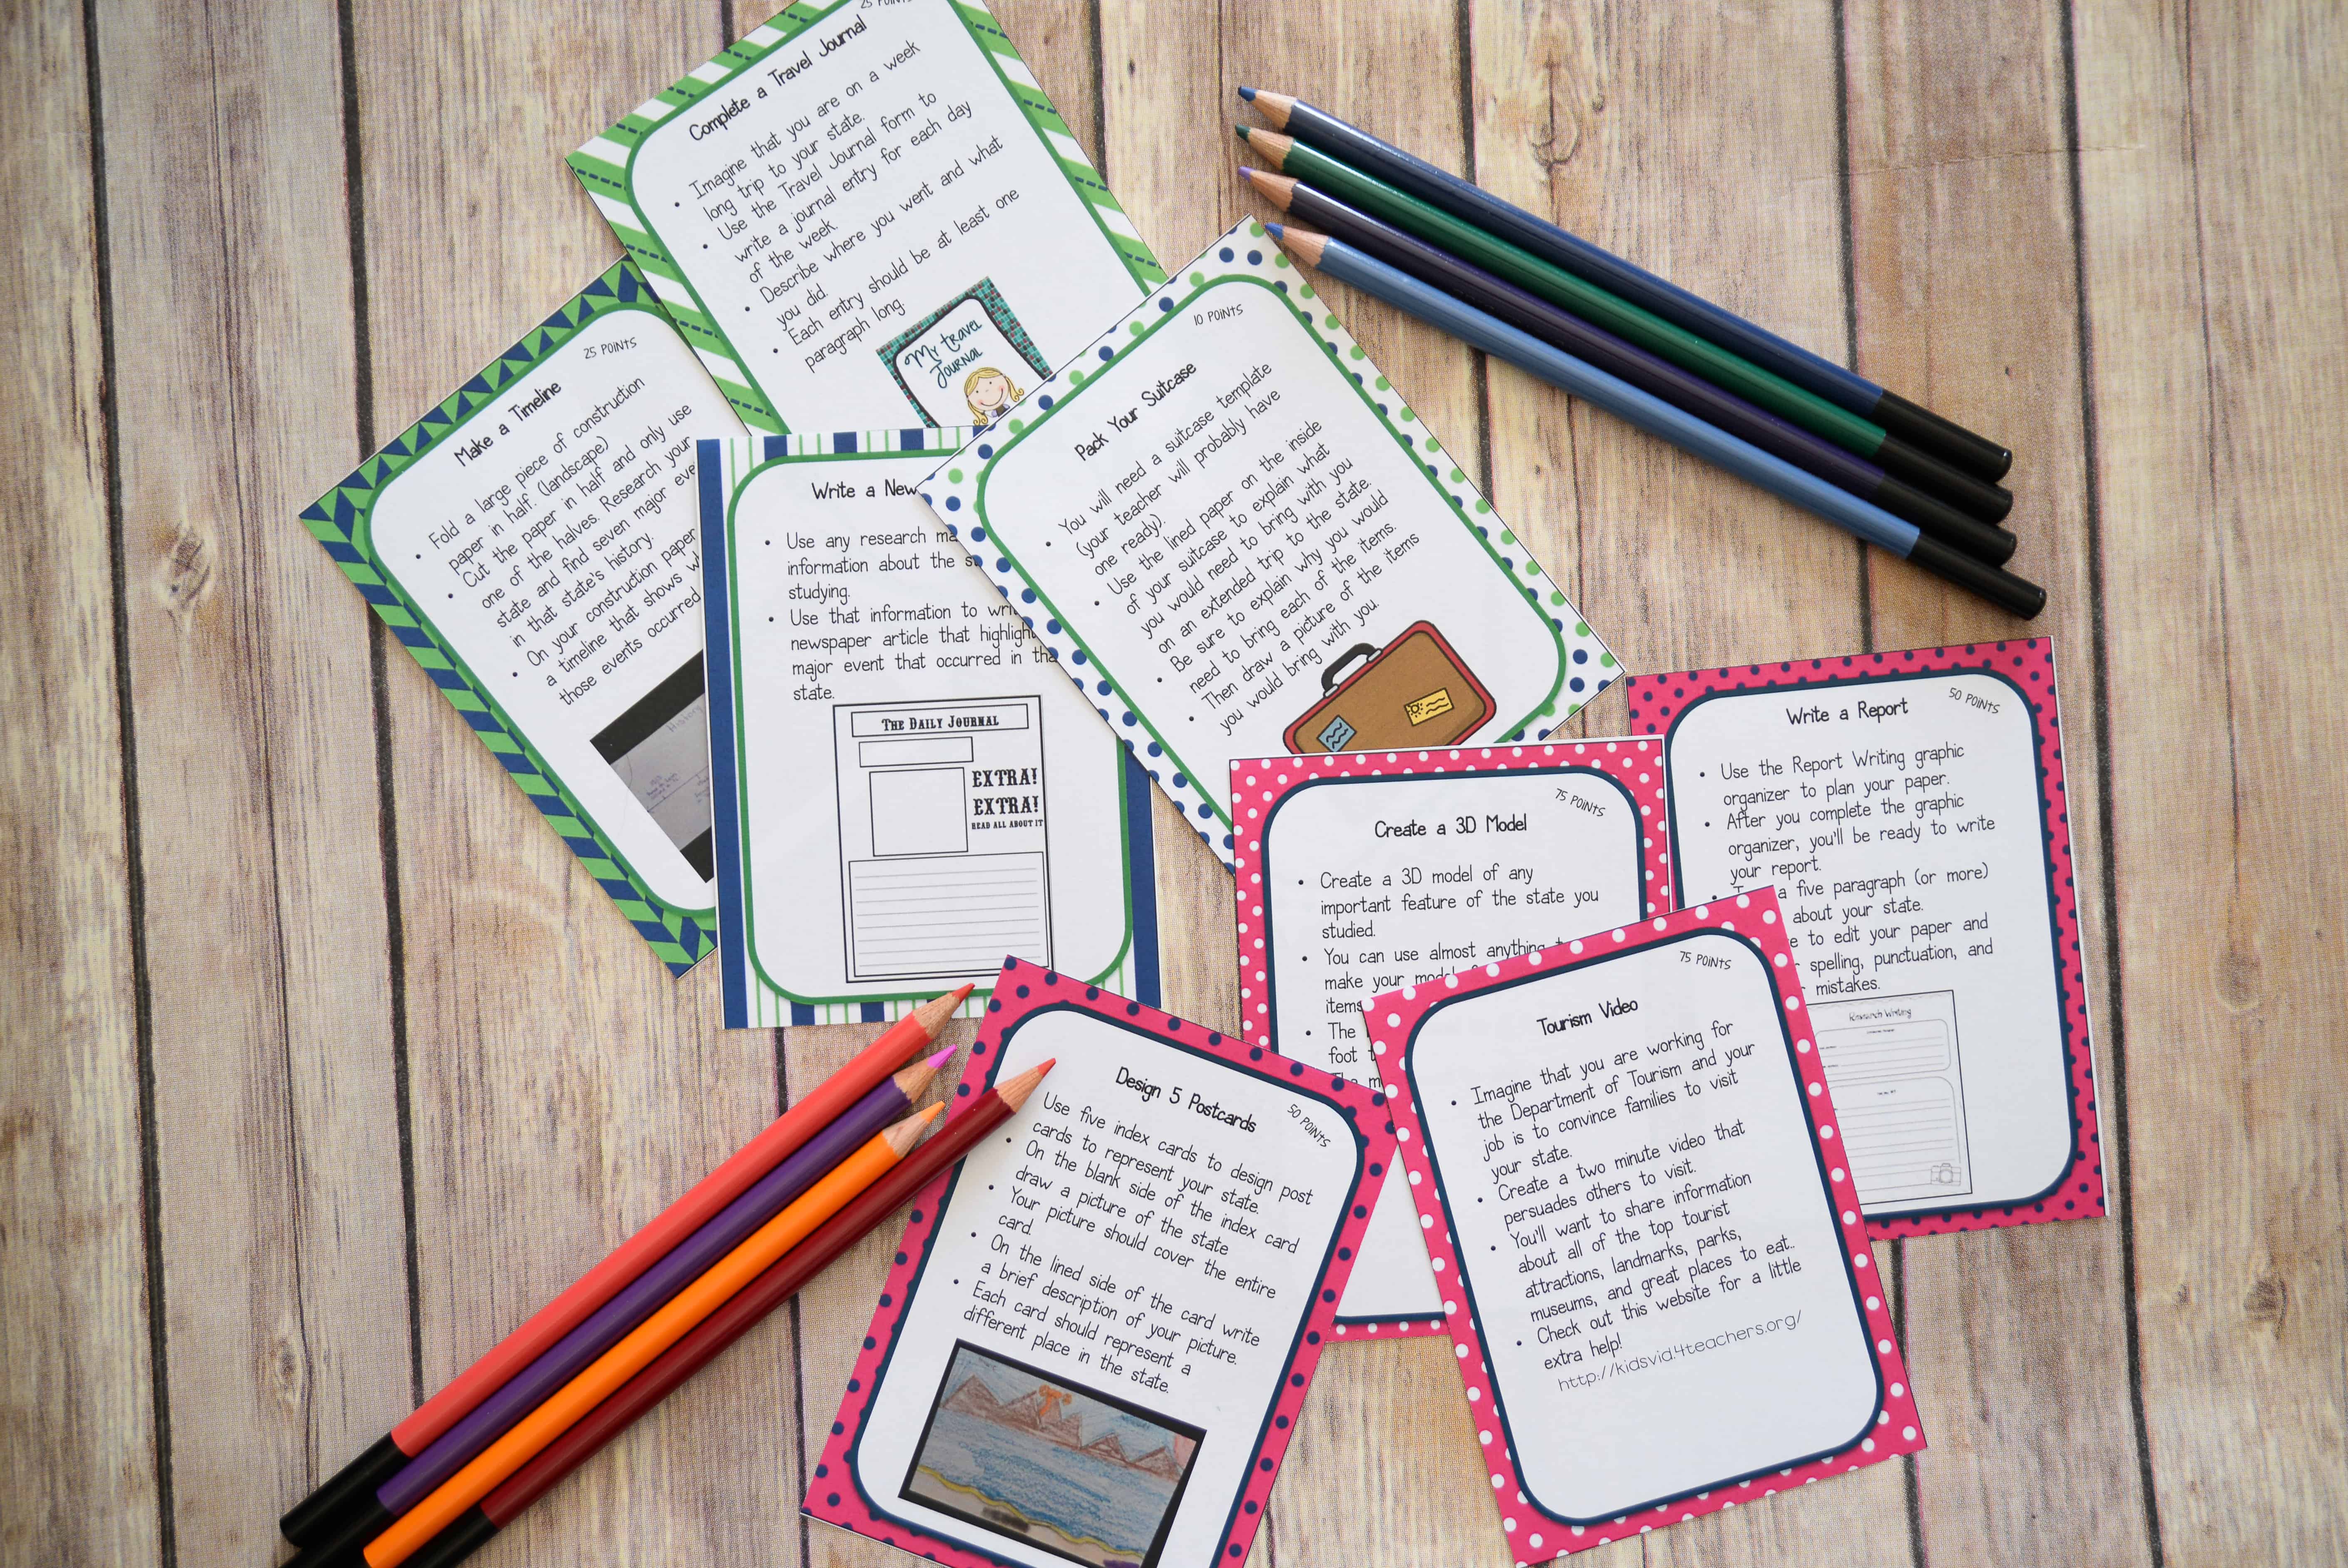 25 POINTS
Complete a Travel Journal
• Imagine that you are on a week
long trip to your state.
• Use the Travel Journal form to
write a journal entry for each day
of the week.
• Describe where you went and what
you did.
• Each entry should be at least one
paragraph long.
My travel
Journal
25 POINTS
Make a Timeline
• Fold a large piece of construction
paper in half. (landscape)
• Cut the paper in half and only use
one of the halves. Research your
state and find seven major
in that state's history.
• On your construction paper
a timeline that shows
those events occurred
History
Write a
• Use any research
information about the
studying.
• Use that information to
newspaper article that
major event that occurred in
state.
THE DAILY JOURNAL
EXTRA!
EXTRA!
READ ALL ABOUT IT
10 POINTS
Pack Your Suitcase
• You will need a suitcase template
(your teacher will probably have
one ready).
• Use the lined paper on the inside
of your suitcase to explain what
you would need to bring with you
on an extended trip to the state.
• Be sure to explain why you would
need to bring each of the items.
• Then draw a picture of the items
you would bring with you.
50 POINTS
Write a Report
• Use the Report Writing graphic
organizer to plan your paper.
• After you complete the graphic
organizer, you'll be ready to write
your report.
a five paragraph (or more)
about your state.
to edit your paper and
spelling, punctuation, and
mistakes.
Research Writing
75 POINTS
Create a 3D Model
• Create a 3D model of any
important feature of the state you
studied.
• You can use almost anything
make your
items
• The
foot
75 POINTS
Tourism Video
• Imagine that you are working for
the Department of Tourism and your
job is to convince families to visit
your state.
• Create a two minute video that
persuades others to visit.
• You'll want to share information
about all of the top tourist
attractions, landmarks, parks,
museums, and great places to eat..
• Check out this website for a little
extra help!
http://kidsvid.4teachers.org/
50 POINTS
Design 5 Postcards
Use five index cards to design post
cards to represent your state.
• On the blank side of the index card
draw a picture of the state
• Your picture should cover the entire
card.
• On the lined side of the card write
a brief description of your picture.
• Each card should represent a
different place in the state.